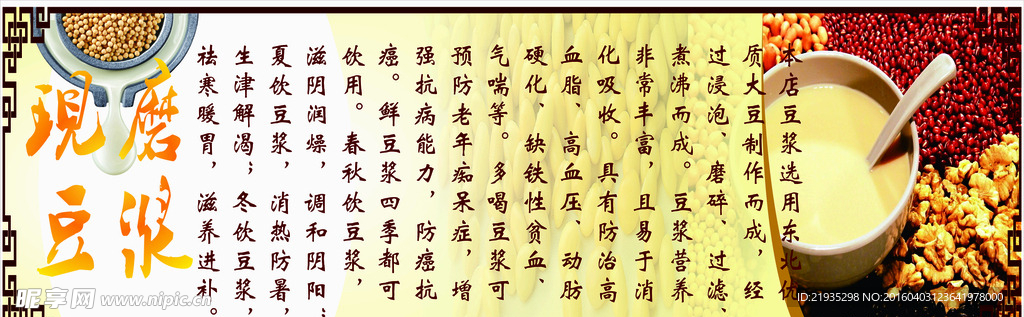 現磨
豆浆
本店豆浆选用东北优
质大豆制作而成，经
过浸泡、磨碎、过滤、
煮沸而成。豆浆营养
非常丰富，且易于消
化吸收。具有防治高
血脂、高血压、动肪
硬化、缺铁性贫血、
气喘等。多喝豆浆可
预防老年痴呆症，增
强抗病能力，防癌抗
癌。鲜豆浆四季都可
饮用。春秋饮豆浆，
滋阴润燥，调和阴阳；
夏饮豆浆，消热防暑，
生津解渴；冬饮豆浆，
祛寒暖胃，滋养进补。
昵享网 www.nipic.cn
ID:21935298 NO:20160403123641978000